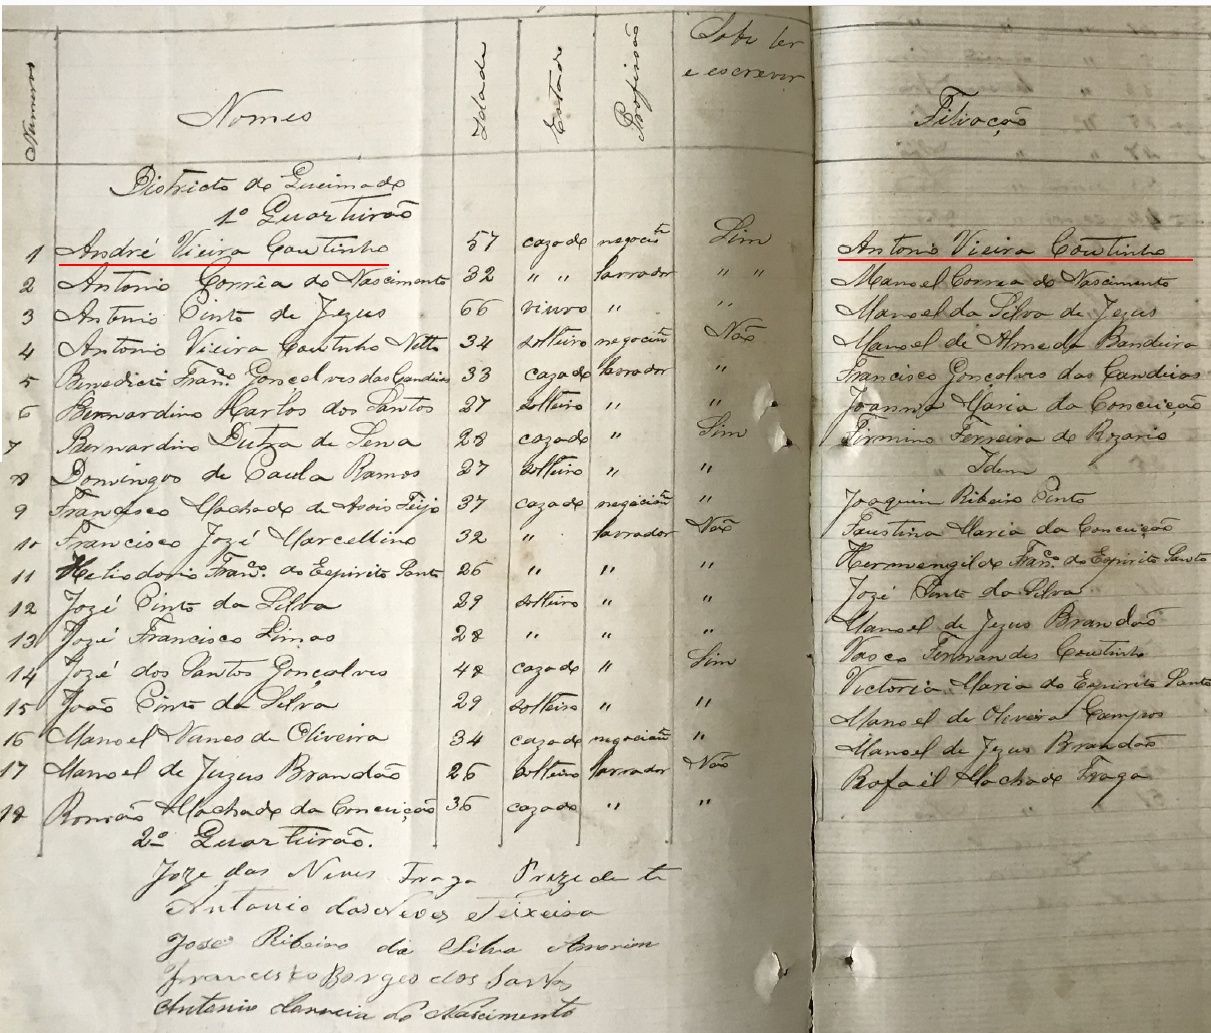 Numeros Nomes Idade Estado Profissão Sabe ler e escrever Filiação
Districto de Queimado
1º Quarteirão
1 André Vieira Coutinho 57 cazado negociãe Sim Antonio Vieira Coutinho
2 Antonio Corrêa do Nascimento 32 " " lavrador " " Manoel Correa do Nascimento
3 Antonio Pinto de Jezus 66 viuvo " " Manoel da Silva de Jezus
4 Antonio Vieira Coutinho Netto 34 solteiro negociãe Não Manoel de Almeda Bandeira
5 Benedicto Franco. Gonçalves das Candeias 33 cazado lavrador " Francisco Gonçalves das Candeias
6 Bernardino Carlos dos Santos 27 solteiro " " Joanna Maria da Conceição
7 Bernardino Dutra de Sena 28 cazado " Sim Firmino Ferreira do Rozario
8 Domingos de Paula Ramos 27 solteiro " " Idem
9 Francisco Machado de Assis Feijo 37 cazado negociãe " Joaquim Ribeiro Pinto
10 Francisco Jozé Marcellino 32 " lavrador Não Faustina Maria da Conceição
11 Heliodorio Franco. do Espirito Santo 26 " " " Hermenegildo Franco. do Espirito Santo
12 Jozé Pinto da Silva 29 solteiro " " Jozé Pinto da Silva
13 Jozé Francisco Limas 28 " " " Manoel de Jezus Brandão
14 Jozé dos Santos Gonçalves 48 cazado " Sim Vasco Fernandes Coutinho
15 João Pinto da Silva 29 solteiro " " Victoria Maria do Espirito Santo
16 Manoel Nunes de Oliveira 34 cazado negociãe " Manoel de Oliveira Campos
17 Manoel de Juzus Brandão 26 solteiro lavrador Não Manoel de Jezus Brandão
18 Romão Machado da Conceição 36 cazado " " Rafael Machado Fraga
2º Quarteirão.
Joze das Neves Fraga Prezidente
Antonio das Neves Teixeira
José Ribeiro da Silva Amorim
Francisco Borges dos Santos
Antonio Correia do Nascimento